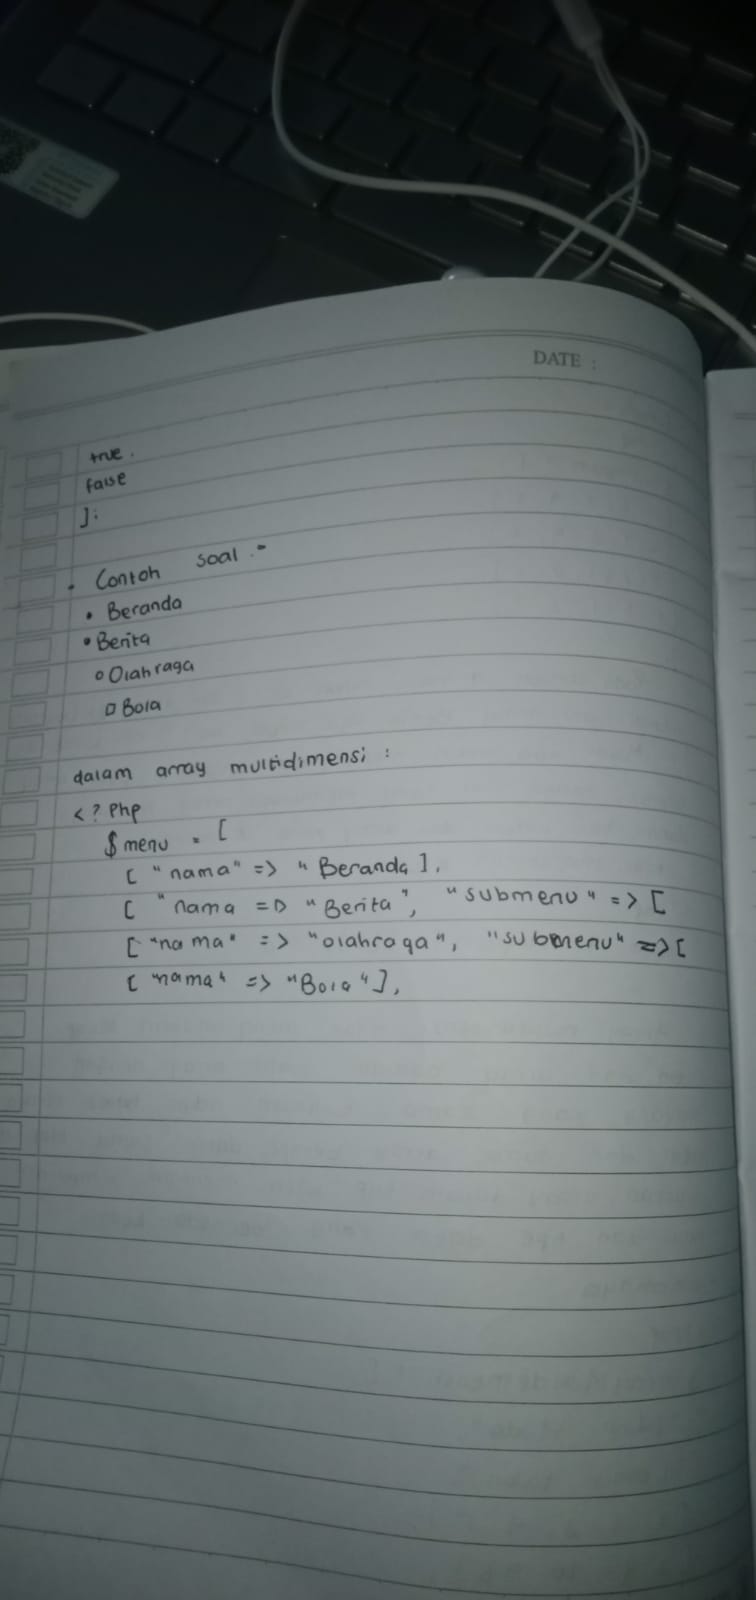 DATE :
true.
false
];
• Contoh soal :-
• Beranda
• Berita
○ Olahraga
□ Bola
dalam array multidimensi :
<? Php
$ menu = [
[ "nama" => "Beranda ],
[ "nama => "Berita", "submenu" => [
[ "nama" => "olahraga", "submenu" => [
[ "nama" => "Bola" ],